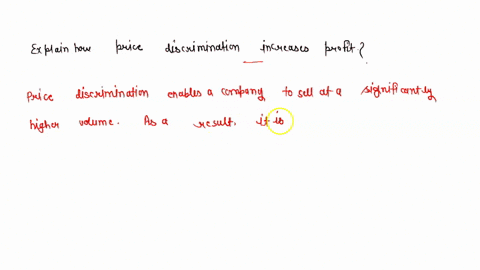 Explain how price discrimination increases profit?
Price discrimination enables a company to sell at a significantly
higher volume. As a result, it is